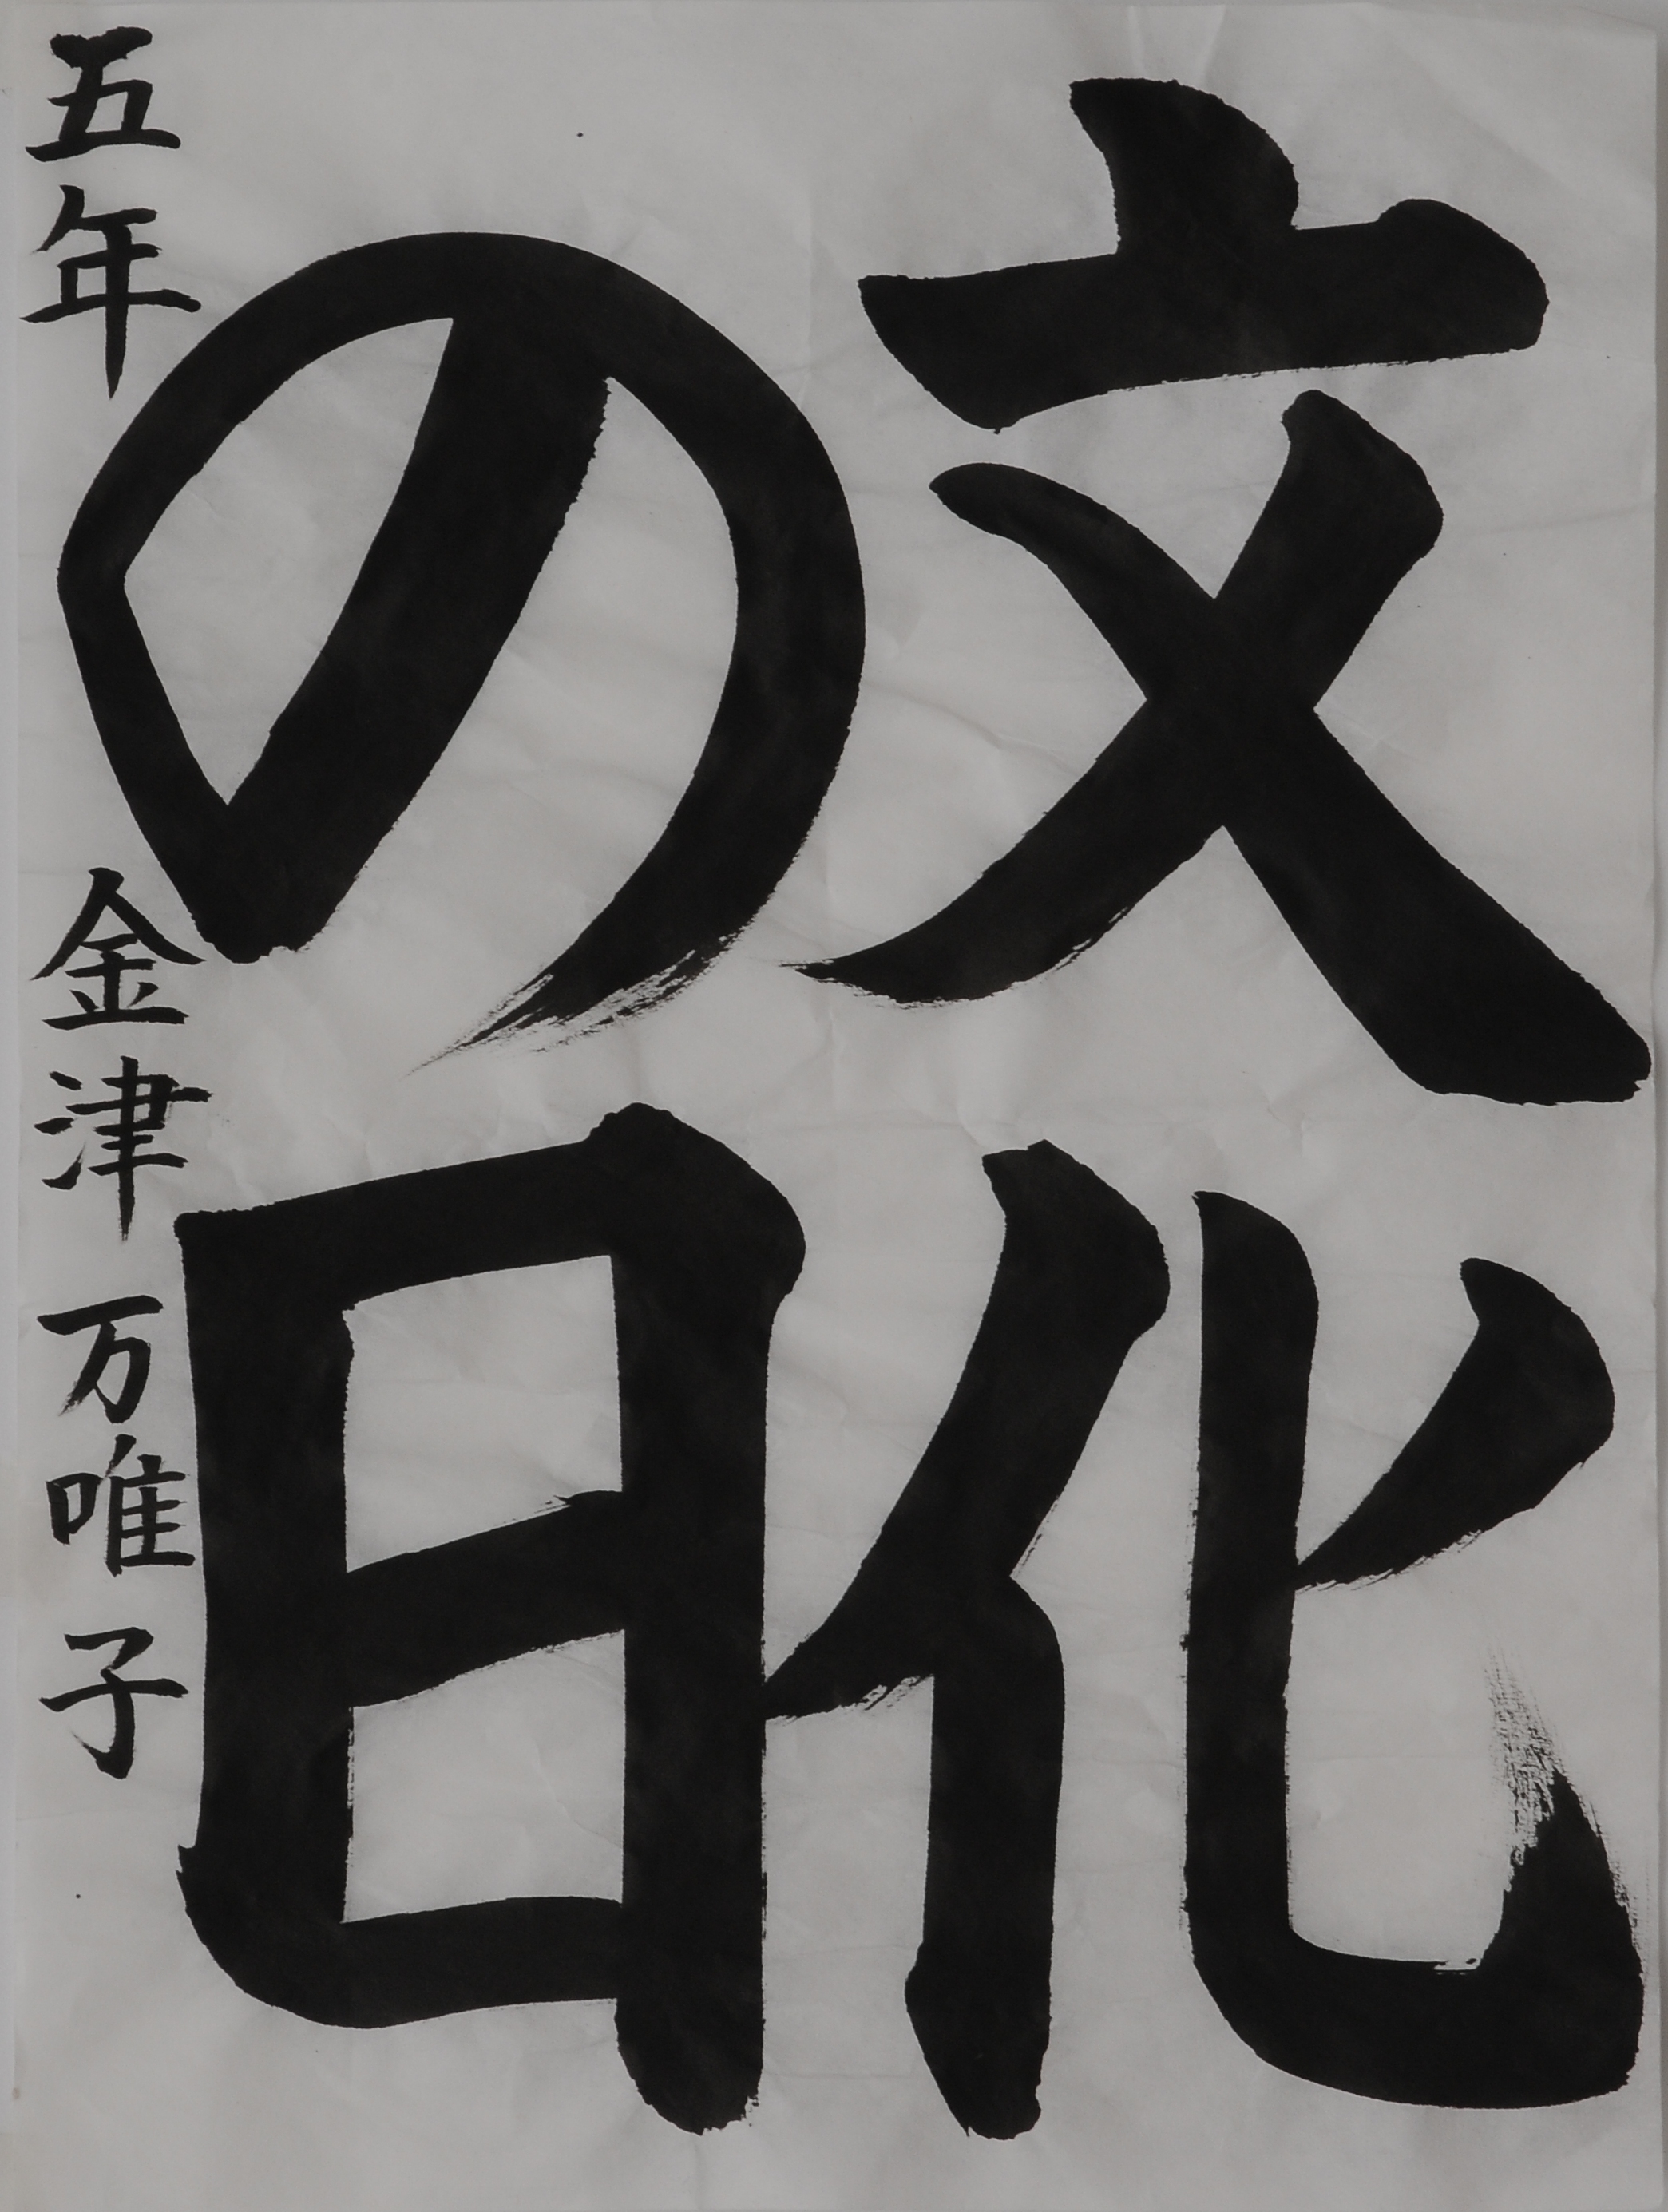 文化
の日
五年 金津万唯子